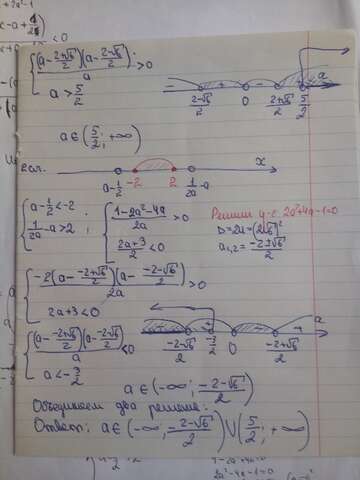 { (a-(2+√6)/2)(a-(2-√6)/2)/a > 0
a > 5/2
- + - + a
(2-√6)/2 0 (2+√6)/2 5/2
a∈(5/2; +∞)
2сл.
a-1/2 -2 2 1/2a-a x
{ a-1/2<-2
1/2a-a>2;
{ (1-2a²-4a)/2a > 0
(2a+3)/2 < 0
Решим ур-е 2a²+4a-1=0
D=24=(2√6)²
a₁,₂=(-2±√6)/2
{ -2(a-(-2+√6)/2)(a-(-2-√6)/2)/2a > 0
2a+3<0
{ (a-(-2+√6)/2)(a-(-2-√6)/2)/a < 0
a<-3/2
- + - + a
(-2-√6)/2 -3/2 0 (-2+√6)/2
a∈(-∞; (-2-√6)/2)
Объединяем два решения:
Ответ: a∈(-∞; (-2-√6)/2)∪(5/2; +∞)
2a²-4a-1=0